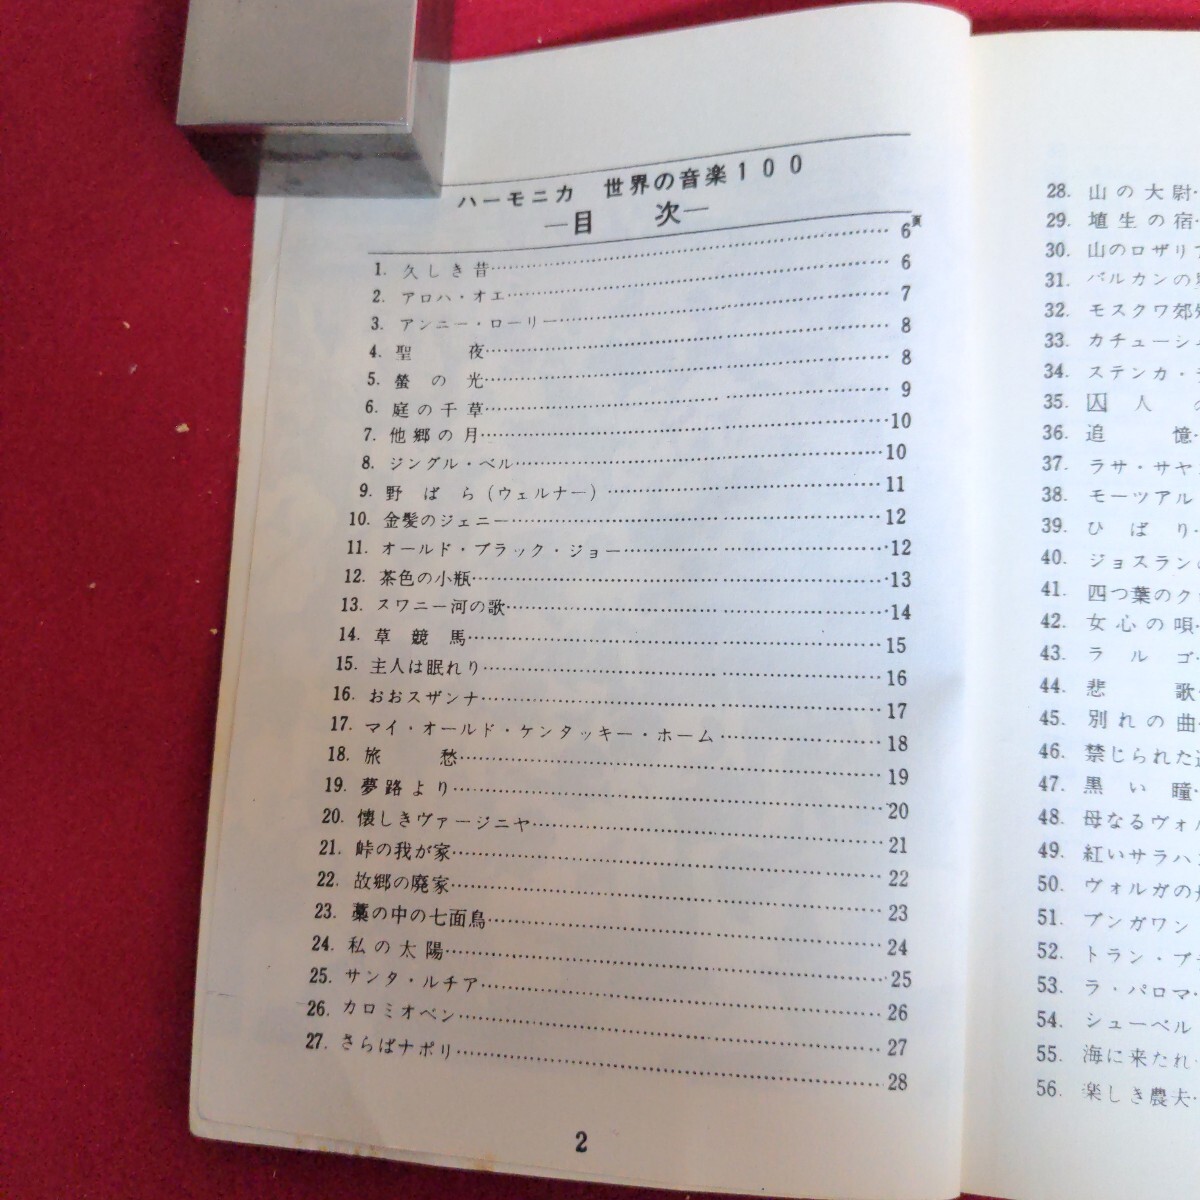 ハーモニカ 世界の音楽100
―目 次―
1. 久しき昔…6頁
2. アロハ・オエ…6
3. アンニー・ローリー…7
4. 聖 夜…8
5. 螢の光…8
6. 庭の千草…9
7. 他郷の月…10
8. ジングル・ベル…10
9. 野ばら(ウェルナー)…11
10. 金髪のジェニー…12
11. オールド・ブラック・ジョー…12
12. 茶色の小瓶…13
13. スワニー河の歌…14
14. 草競馬…15
15. 主人は眠れり…16
16. おおスザンナ…17
17. マイ・オールド・ケンタッキー・ホーム…18
18. 旅 愁…19
19. 夢路より…20
20. 懐しきヴァージニヤ…21
21. 峠の我が家…22
22. 故郷の廃家…23
23. 藁の中の七面鳥…24
24. 私の太陽…25
25. サンタ・ルチア…26
26. カロミオベン…27
27. さらばナポリ…28
2
28. 山の大尉
29. 埴生の宿
30. 山のロザリ
31. バルカンの
32. モスクワ郊
33. カチューシ
34. ステンカ・
35. 囚人
36. 追 憶
37. ラサ・サヤ
38. モーツアル
39. ひばり
40. ジョスラン
41. 四つ葉のク
42. 女心の唄
43. ラルゴ
44. 悲 歌
45. 別れの曲
46. 禁じられた
47. 黒い瞳
48. 母なるヴォ
49. 紅いサラハ
50. ヴォルガの
51. ブンガワン
52. トラン・ブ
53. ラ・パロマ
54. シューベル
55. 海に来たれ
56. 楽しき農夫